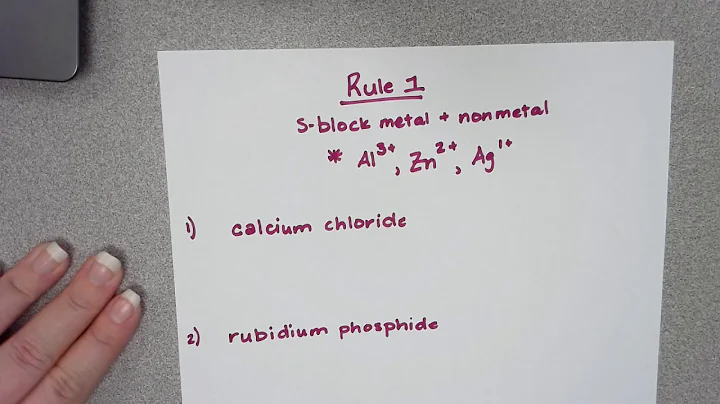 Rule 1
S-block metal + nonmetal
* Al³⁺, Zn²⁺, Ag¹⁺
1) calcium chloride
2) rubidium phosphide